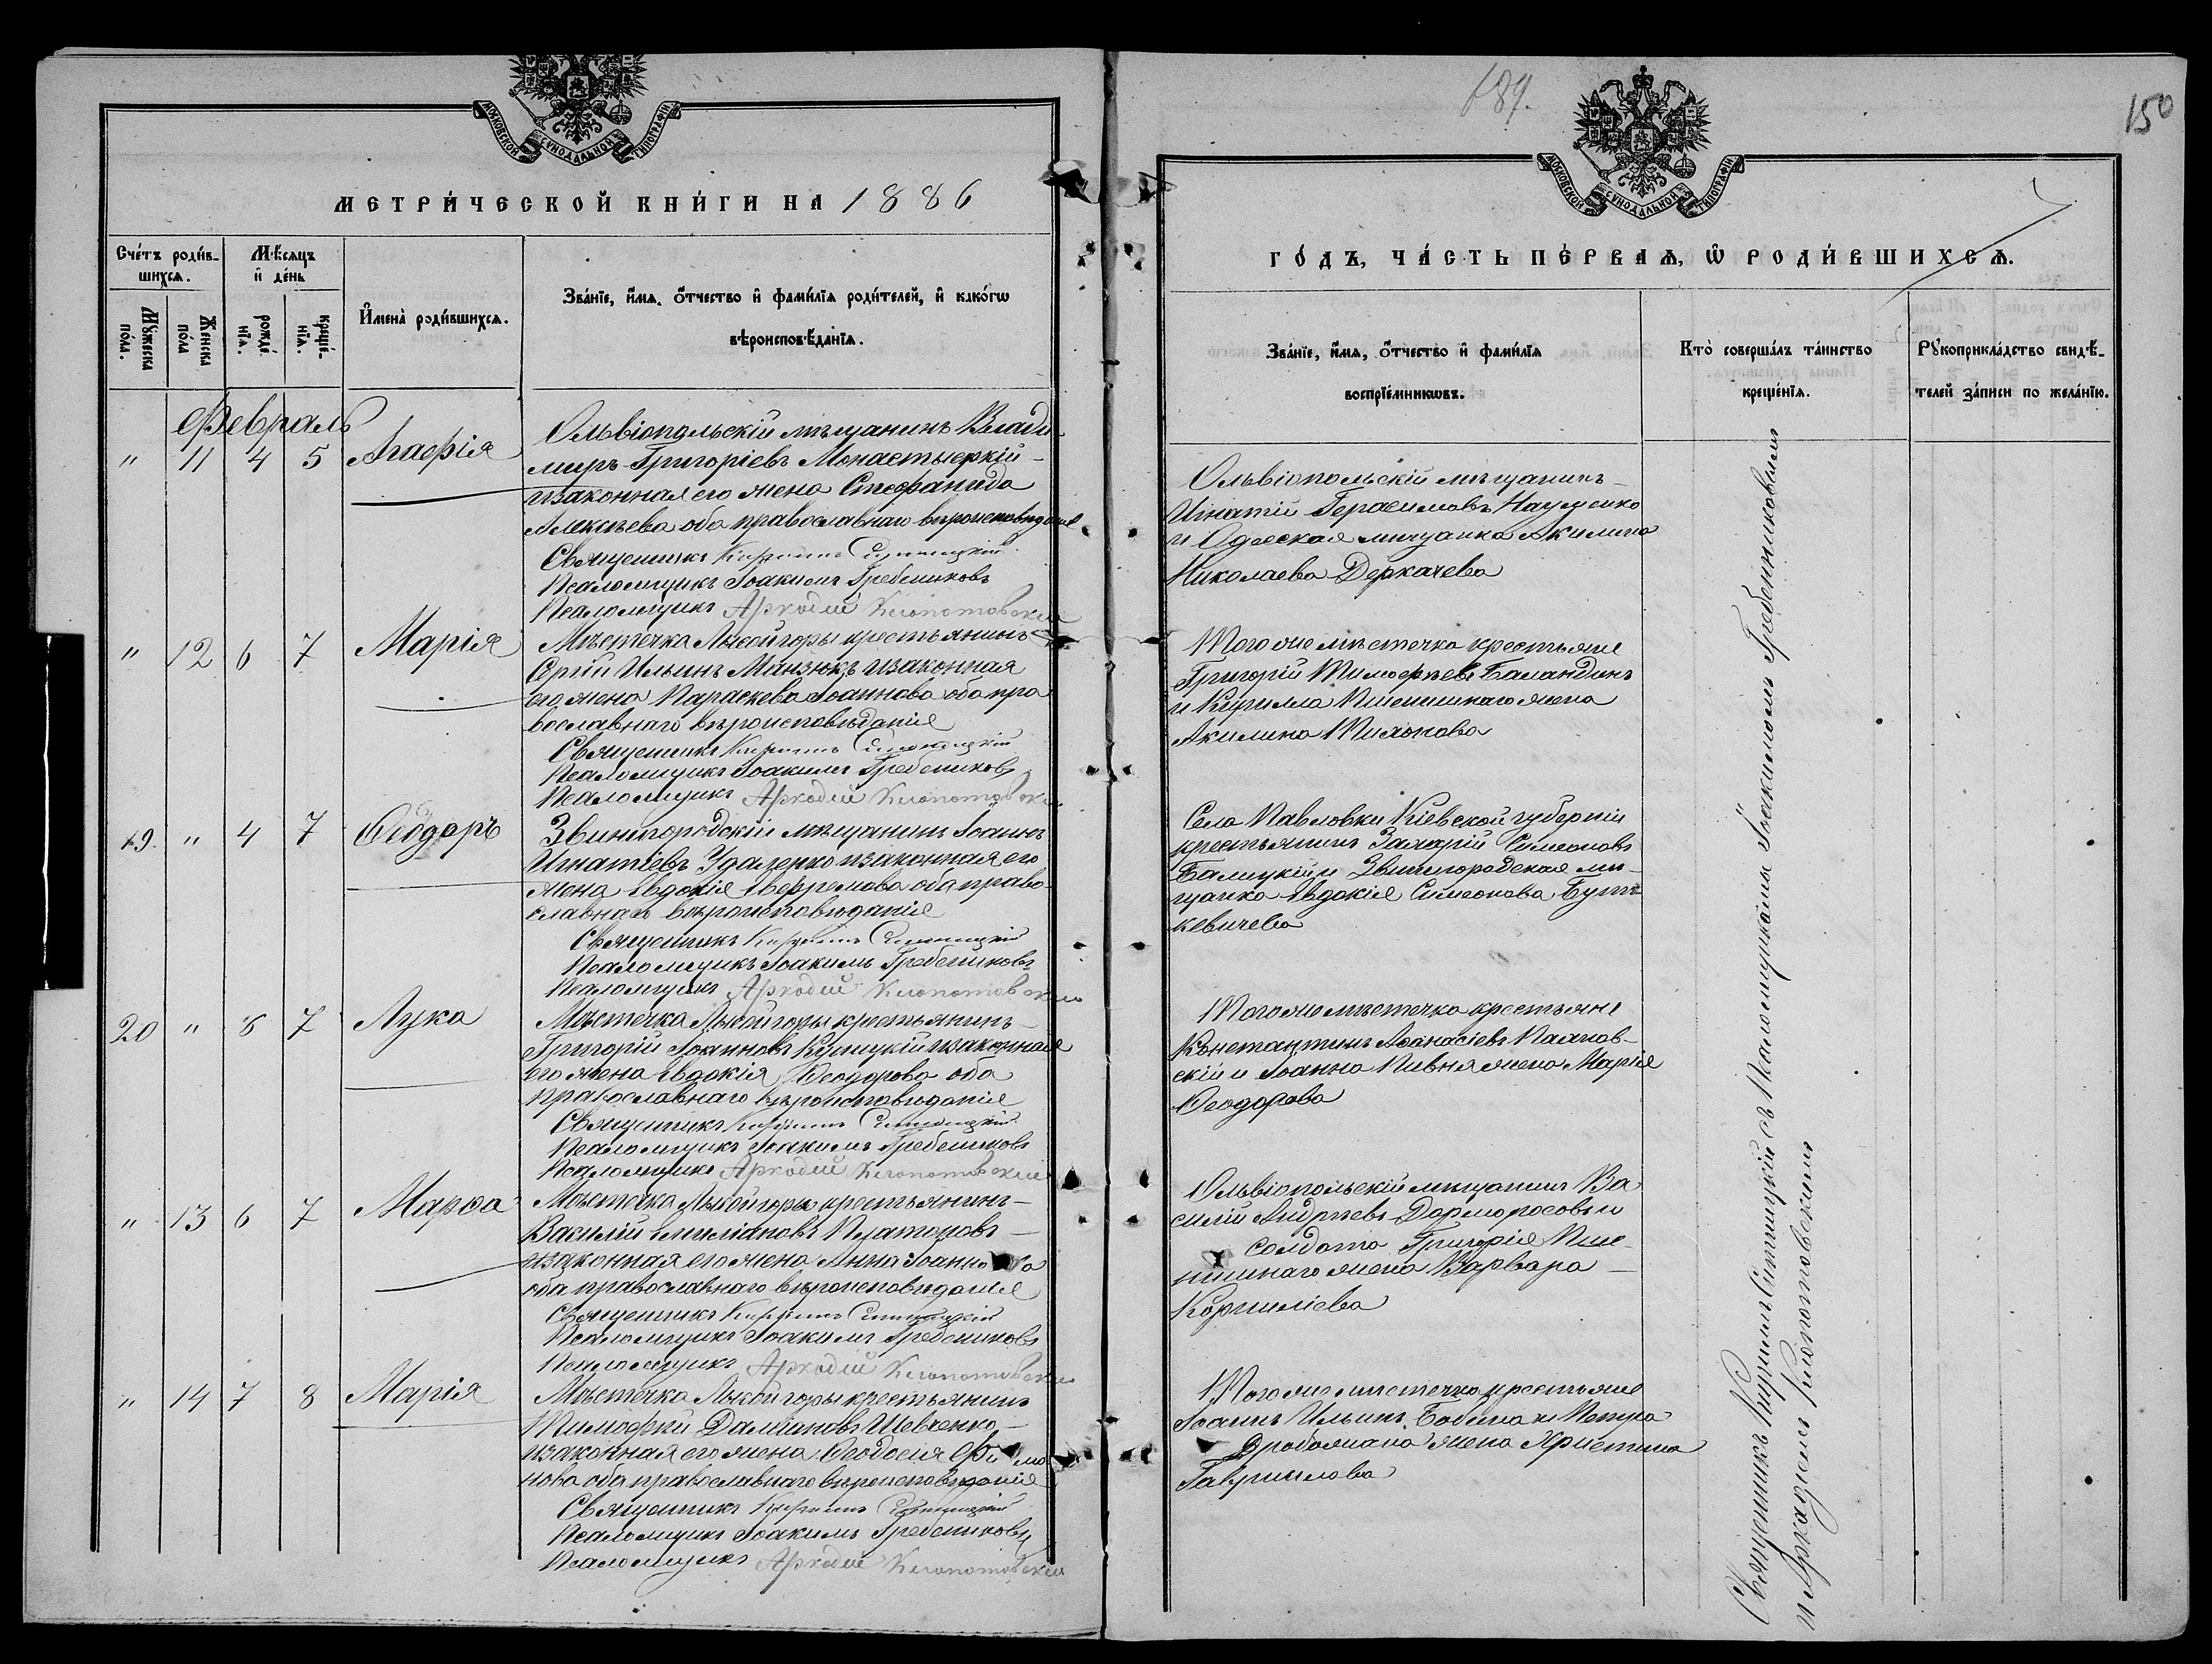 МОСКОВСКОЙ СУНОДАЛЬНОЙ ТИПОГРАФІИ
МЕТРИ́ЧЕСКОЙ КНИ́ГИ НА 1886
Сче́тъ роди́в-
шихся.
Мѣ́сяцъ
и҆ де́нь
Мꙋ́жеска
по́ла.
Же́нска
по́ла
рожде́-
нїѧ.
креще́-
нїѧ.
И҆мена̀ роди́вшихсѧ.
Зва́нїе, и҆́мѧ, ѻ҆́тчество и҆ фами́лїѧ роди́телей, и҆ како́гѡ
вѣроисповѣ́данїѧ.
Февраль
" 11 4 5 Агафія
Ольвіопольскій мѣщанинъ Влади
миръ Григоріевъ Монастырскій
и законная его жена Стефанида
Алексѣева оба православнаго вѣроисповѣданія
Священникъ Кириллъ Ситницкій
Псаломщикъ Іоакимъ Гребенниковъ
Псаломщикъ Аркадій Клопотовскій
" 12 6 7 Марія
Мѣстечка Лысой горы крестьянинъ
Сергій Ильинъ Манзюкъ и законная
его жена Параскева Іоаннова оба пра
вославнаго вѣроисповѣданія
Священникъ Кириллъ Ситницкій
Псаломщикъ Іоакимъ Гребенниковъ
Псаломщикъ Аркадій Клопотовскій
19. " 4 7 Ѳеодоръ
Звингородскій мѣщанинъ Іоаннъ
Игнатіевъ и законная его
жена Евдокія Ефремова оба право
славнаго вѣроисповѣданія
Священникъ Кириллъ Ситницкій
Псаломщикъ Іоакимъ Гребенниковъ
Псаломщикъ Аркадій Клопотовскій
20 " 6 7 Лука
Мѣстечка Лысой горы крестьянинъ
Григорій Іоанновъ и законная
его жена Евдокія Ѳеодорова оба
православнаго вѣроисповѣданія
Священникъ Кириллъ Ситницкій
Псаломщикъ Іоакимъ Гребенниковъ
Псаломщикъ Аркадій Клопотовскій
" 13 6 7 Марѳа
Мѣстечка Лысой горы крестьянинъ
Василій Емиліановъ Платоновъ
и законная его жена Анна Іоаннова
оба православнаго вѣроисповѣданія
Священникъ Кириллъ Ситницкій
Псаломщикъ Іоакимъ Гребенниковъ
Псаломщикъ Аркадій Клопотовскій
" 14 7 8 Марія
Мѣстечка Лысой горы крестьянинъ
Тимофей Даміановъ Шевченко
и законная его жена Ѳеодосія
нова оба православнаго вѣроисповѣданія
Священникъ Кириллъ Ситницкій
Псаломщикъ Іоакимъ Гребенниковъ
Псаломщикъ Аркадій Клопотовскій
189.
150
МОСКОВСКОЙ СУНОДАЛЬНОЙ ТИПОГРАФІИ
ГО́ДЪ, ЧА́СТЬ ПЕ́РВАѦ, Ѡ҆ РОДИ́ВШИХСѦ.
Зва́нїе, и҆́мѧ, ѻ҆́тчество и҆ фами́лїѧ
воспрїе́мникѡвъ.
Кто̀ соверша́лъ та́инство
креще́нїѧ.
Рꙋкоприкла́дство свидѣ́-
телей за́писи по жела́нїю.
Ольвіопольскій мѣщанинъ
Игнатій Герасимовъ Науменко
и Одесская мѣщанка Акилина
Николаева Деркачева
Того же мѣстечка крестьяне
Григорій Тимофѣевъ Баландинъ
и Кирилла Пшенишнаго жена
Акилина
Села Павловки Кіевской губерніи
крестьянинъ Захарій Симеоновъ
Балицкій и Звингородская мѣ-
щанка Евдокія Симеонова Бут-
кевичева
Того же мѣстечка крестьяне
Константинъ Аѳанасіевъ Палнов-
скій и Іоанна Пивня жена Марія
Ѳеодорова
Ольвіопольскій мѣщанинъ Ва
силій Андреевъ Дорморосовъ и
солдата Григорія Пше-
нишнаго жена Варвара
Корниліева
Того же мѣстечка крестьяне
Іоаннъ Ильинъ и Петра
Дробомана жена Христина
Гавриилова
Священникъ Кириллъ Ситницкій съ Псаломщиками Іоакимомъ Гребенниковымъ
и Аркадіемъ Клопотовскимъ